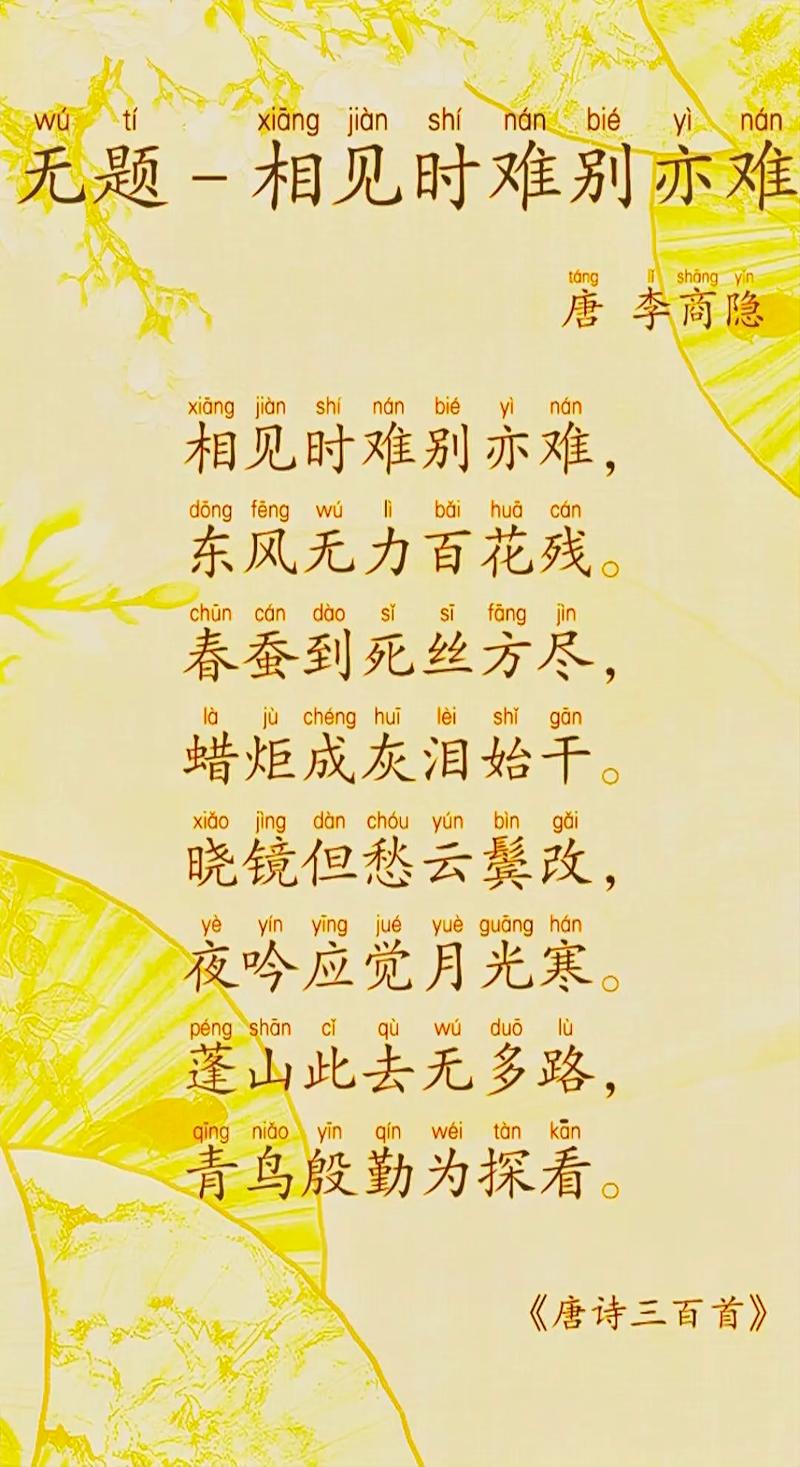 wú tí xiāng jiàn shí nán bié yì nán
无题－相见时难别亦难
táng lǐ shāng yǐn
唐 李商隐
xiāng jiàn shí nán bié yì nán
相见时难别亦难，
dōng fēng wú lì bǎi huā cán
东风无力百花残。
chūn cán dào sǐ sī fāng jìn
春蚕到死丝方尽，
là jù chéng huī lèi shǐ gān
蜡炬成灰泪始干。
xiǎo jìng dàn chóu yún bìn gǎi
晓镜但愁云鬓改，
yè yín yīng jué yuè guāng hán
夜吟应觉月光寒。
péng shān cǐ qù wú duō lù
蓬山此去无多路，
qīng niǎo yīn qín wéi tàn kān
青鸟殷勤为探看。
《唐诗三百首》